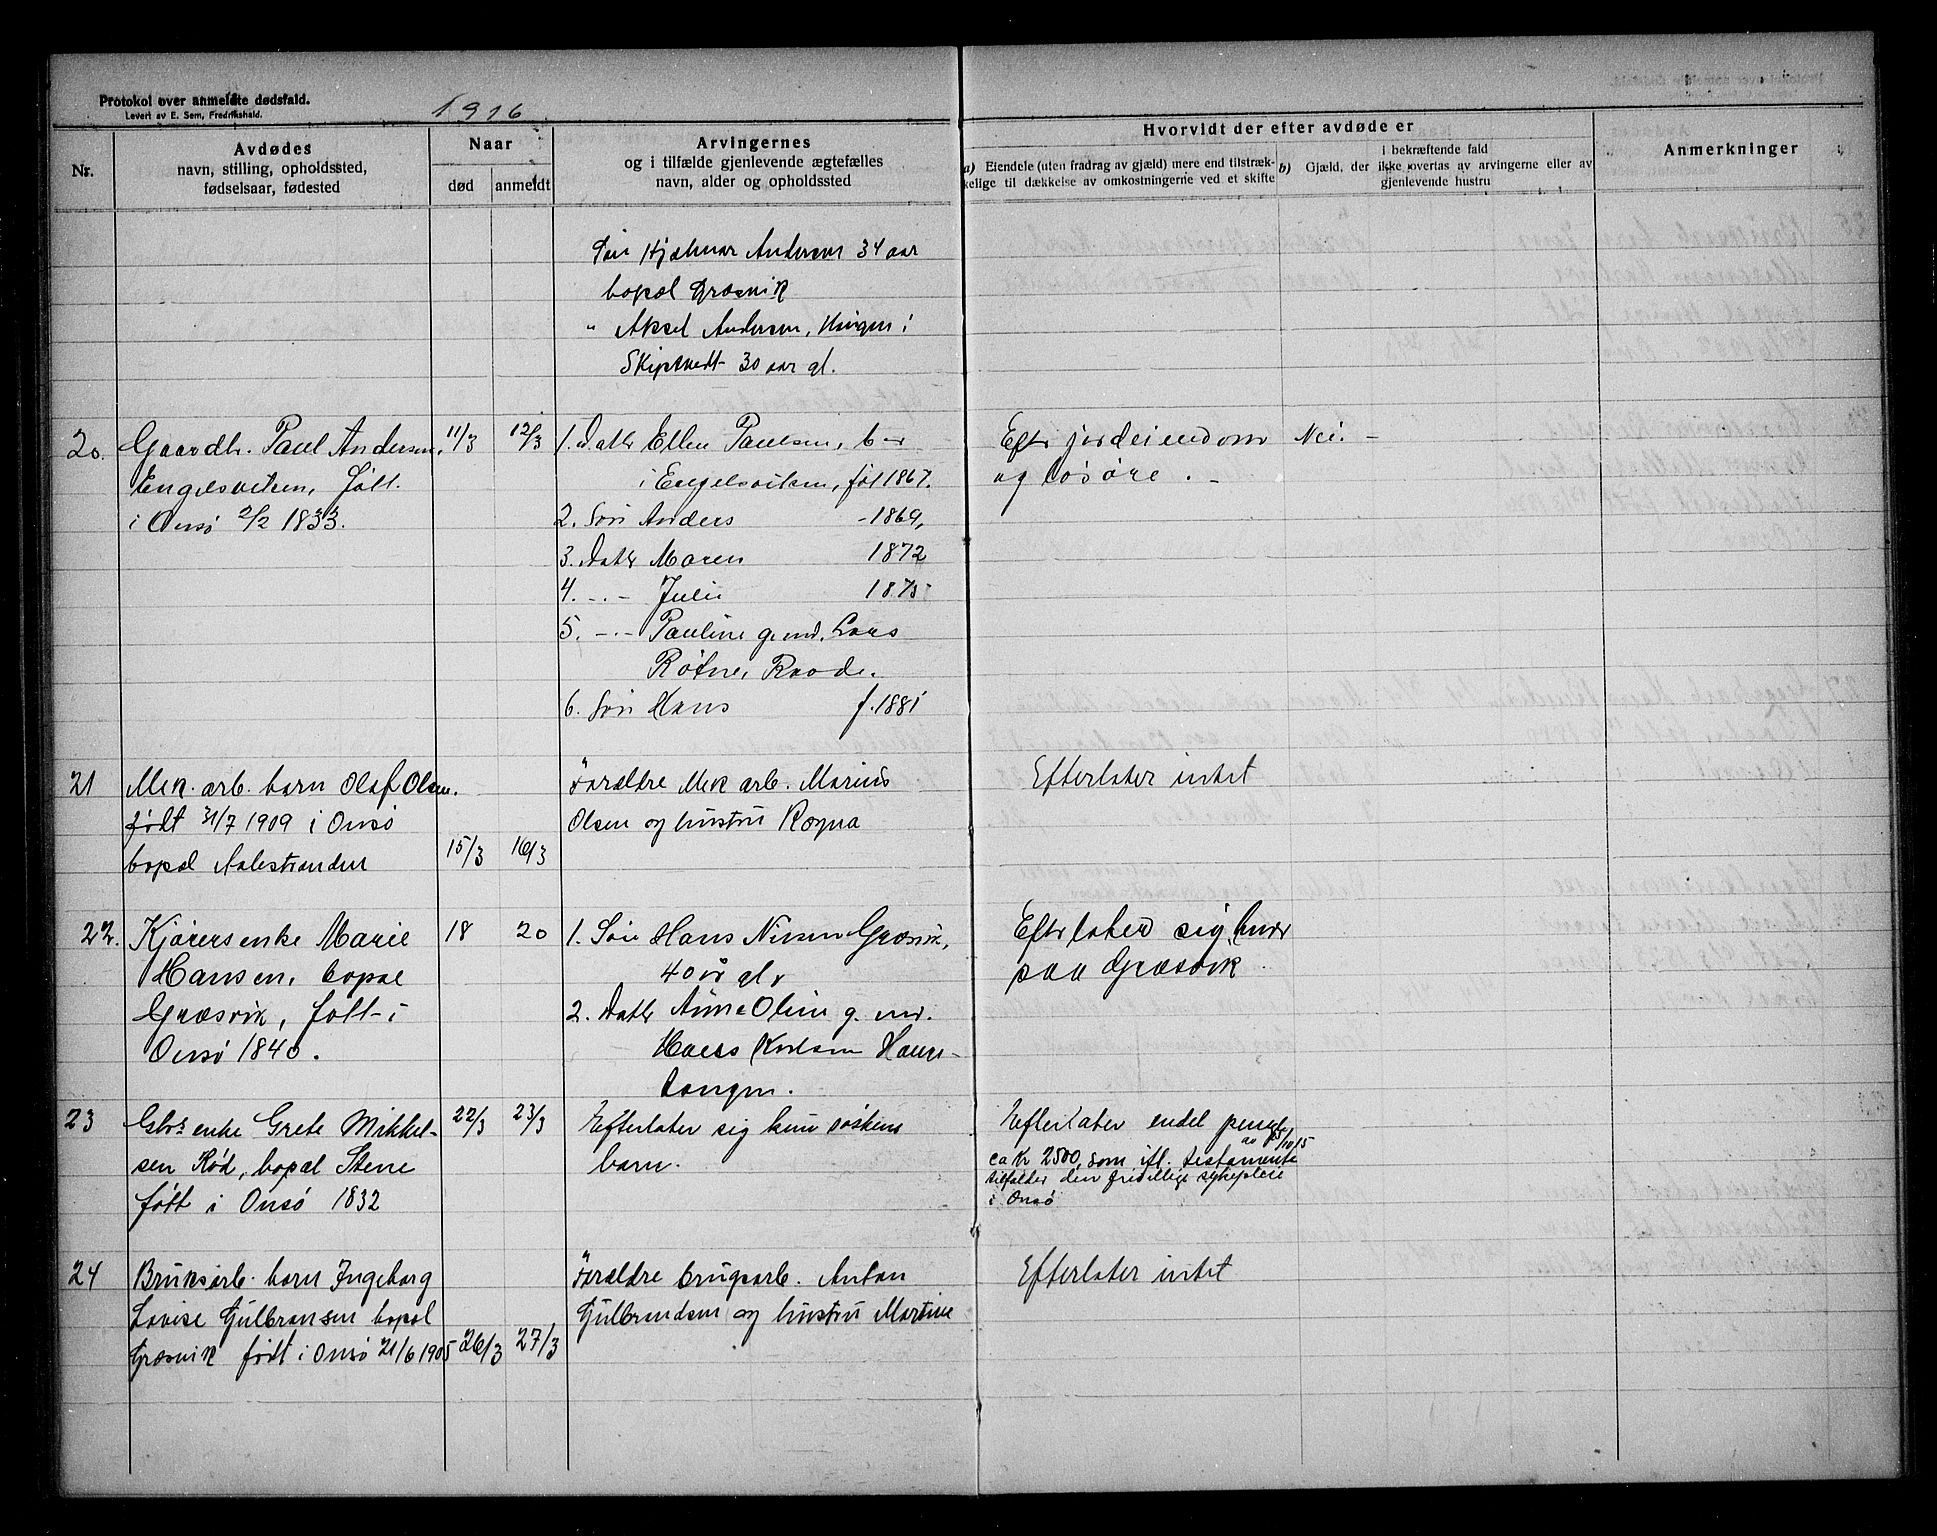 Protokol over anmeldte dødsfald.
Levert av E. Sem, Fredrikshald.
1916
Nr.
Avdødes
navn, stilling, opholdssted,
fødselsaar, fødested
Naar
død
anmeldt
Arvingernes
og i tilfælde gjenlevende ægtefælles
navn, alder og opholdssted
Hvorvidt der efter avdøde er
a) Eiendele (uten fradrag av gjæld) mere end tilstræk-
kelige til dækkelse av omkostningerne ved et skifte
i bekræftende fald
b) Gjæld, der ikke overtas av arvingerne eller av
gjenlevende hustru
Anmerkninger
Søn Hjalmar Andersen 34 aar
bopæl Græsvik
" Aksel Andersen,
Skiptvedt 30 aar gl.
20. Gaardbr. Paul Andersen,
Engelsviken, født
i Onsø 2/2 1833.
11/3
12/3
1. Datter Ellen Paulsen,
i Engelsviken, født 1867.
2. Søn Anders - 1869,
3. Datter Maren 1872
4. -"- Julie 1875
5. -"- Pauline g. med. Lars
Rade.
6. Søn Hans f. 1881
Efter jordeiendom
og løsøre. -
Nei. -
21 Mek. arb. barn Olaf Olsen.
født 31/7 1909 i Onsø
bopæl Aalestranden
15/3
16/3
Forældre Mek arb. Marius
Olsen og hustru Ragna
Efterlater intet
22. Kjørersenke Marie
Hansen, bopæl
Græsvik, født i
Onsø 1840.
18
20
1. Søn Hans Nilsen Græsvik,
40 år gl.
2. Datter Anne Oline g. med.
Karlsen
tangen.
Efterlater sig
paa Græsvik
23 Gbrs enke Grete Mikkel-
sen Rød, bopæl Stene
født i Onsø 1832
22/3
23/3
Efterlater sig kun søskens
barn.
Efterlater endel penge
av /10 15
ca Kr 2500, som ifl. testamente
tilfalder den frivillige sykepleie
i Onsø
24 Bruksarb. barn Ingeborg
Lovise Gulbransen bopæl
Græsvik født i Onsø 21/6 1905
26/3
27/3
Forældre brugsarb. Anton
Gulbrandsen og hustru Martine
Efterlater intet